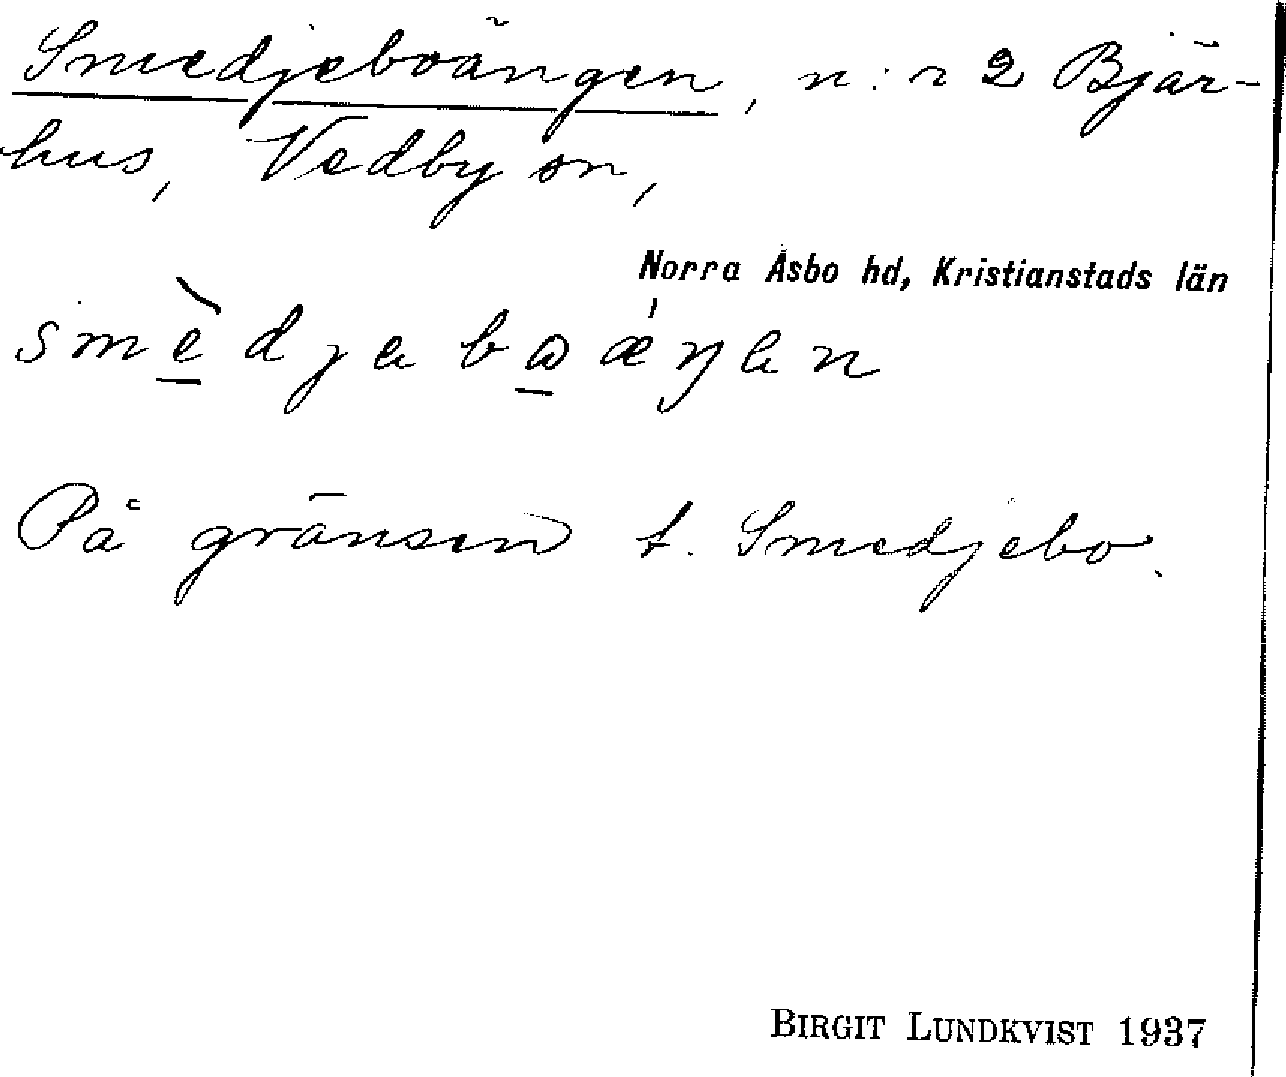 Smedjeboängen, n:r 2 Bjär-
hus, Vedby sn,
Norra Åsbo hd, Kristianstads län
smèdjebɷǽŋen
På gränsen t. Smedjebo.
BIRGIT LUNDKVIST 1937